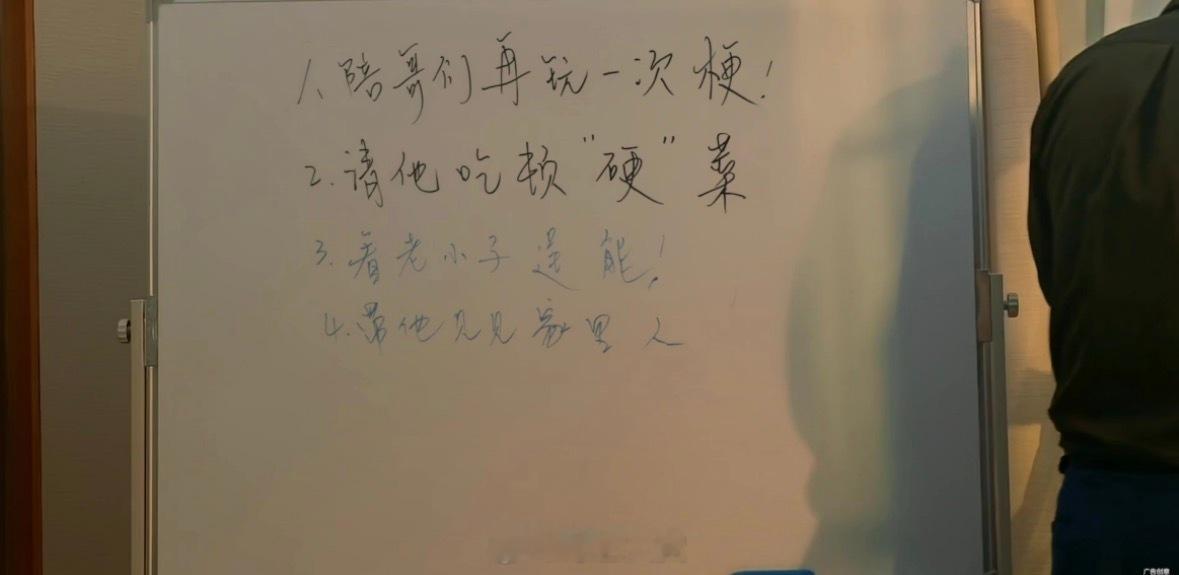 1、陪哥们再玩一次梗!
2.请他吃顿"硬"菜
3.看老小子逞能!
4.带他见见家里人
广告创意